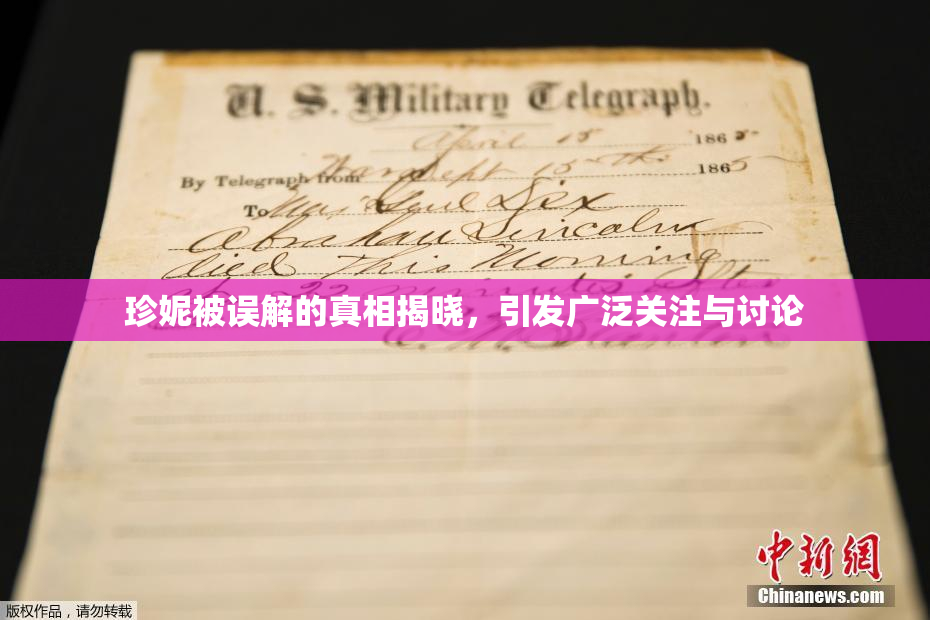 U. S. Military Telegraph.
April 15 1865
By Telegraph from War Dept 15th 1865
To Maj Genl Dix
Abraham Lincoln
died this Morning
at 22 minutes after
珍妮被误解的真相揭晓，引发广泛关注与讨论
E. M. Stanton
中新网
Chinanews.com
版权作品，请勿转载